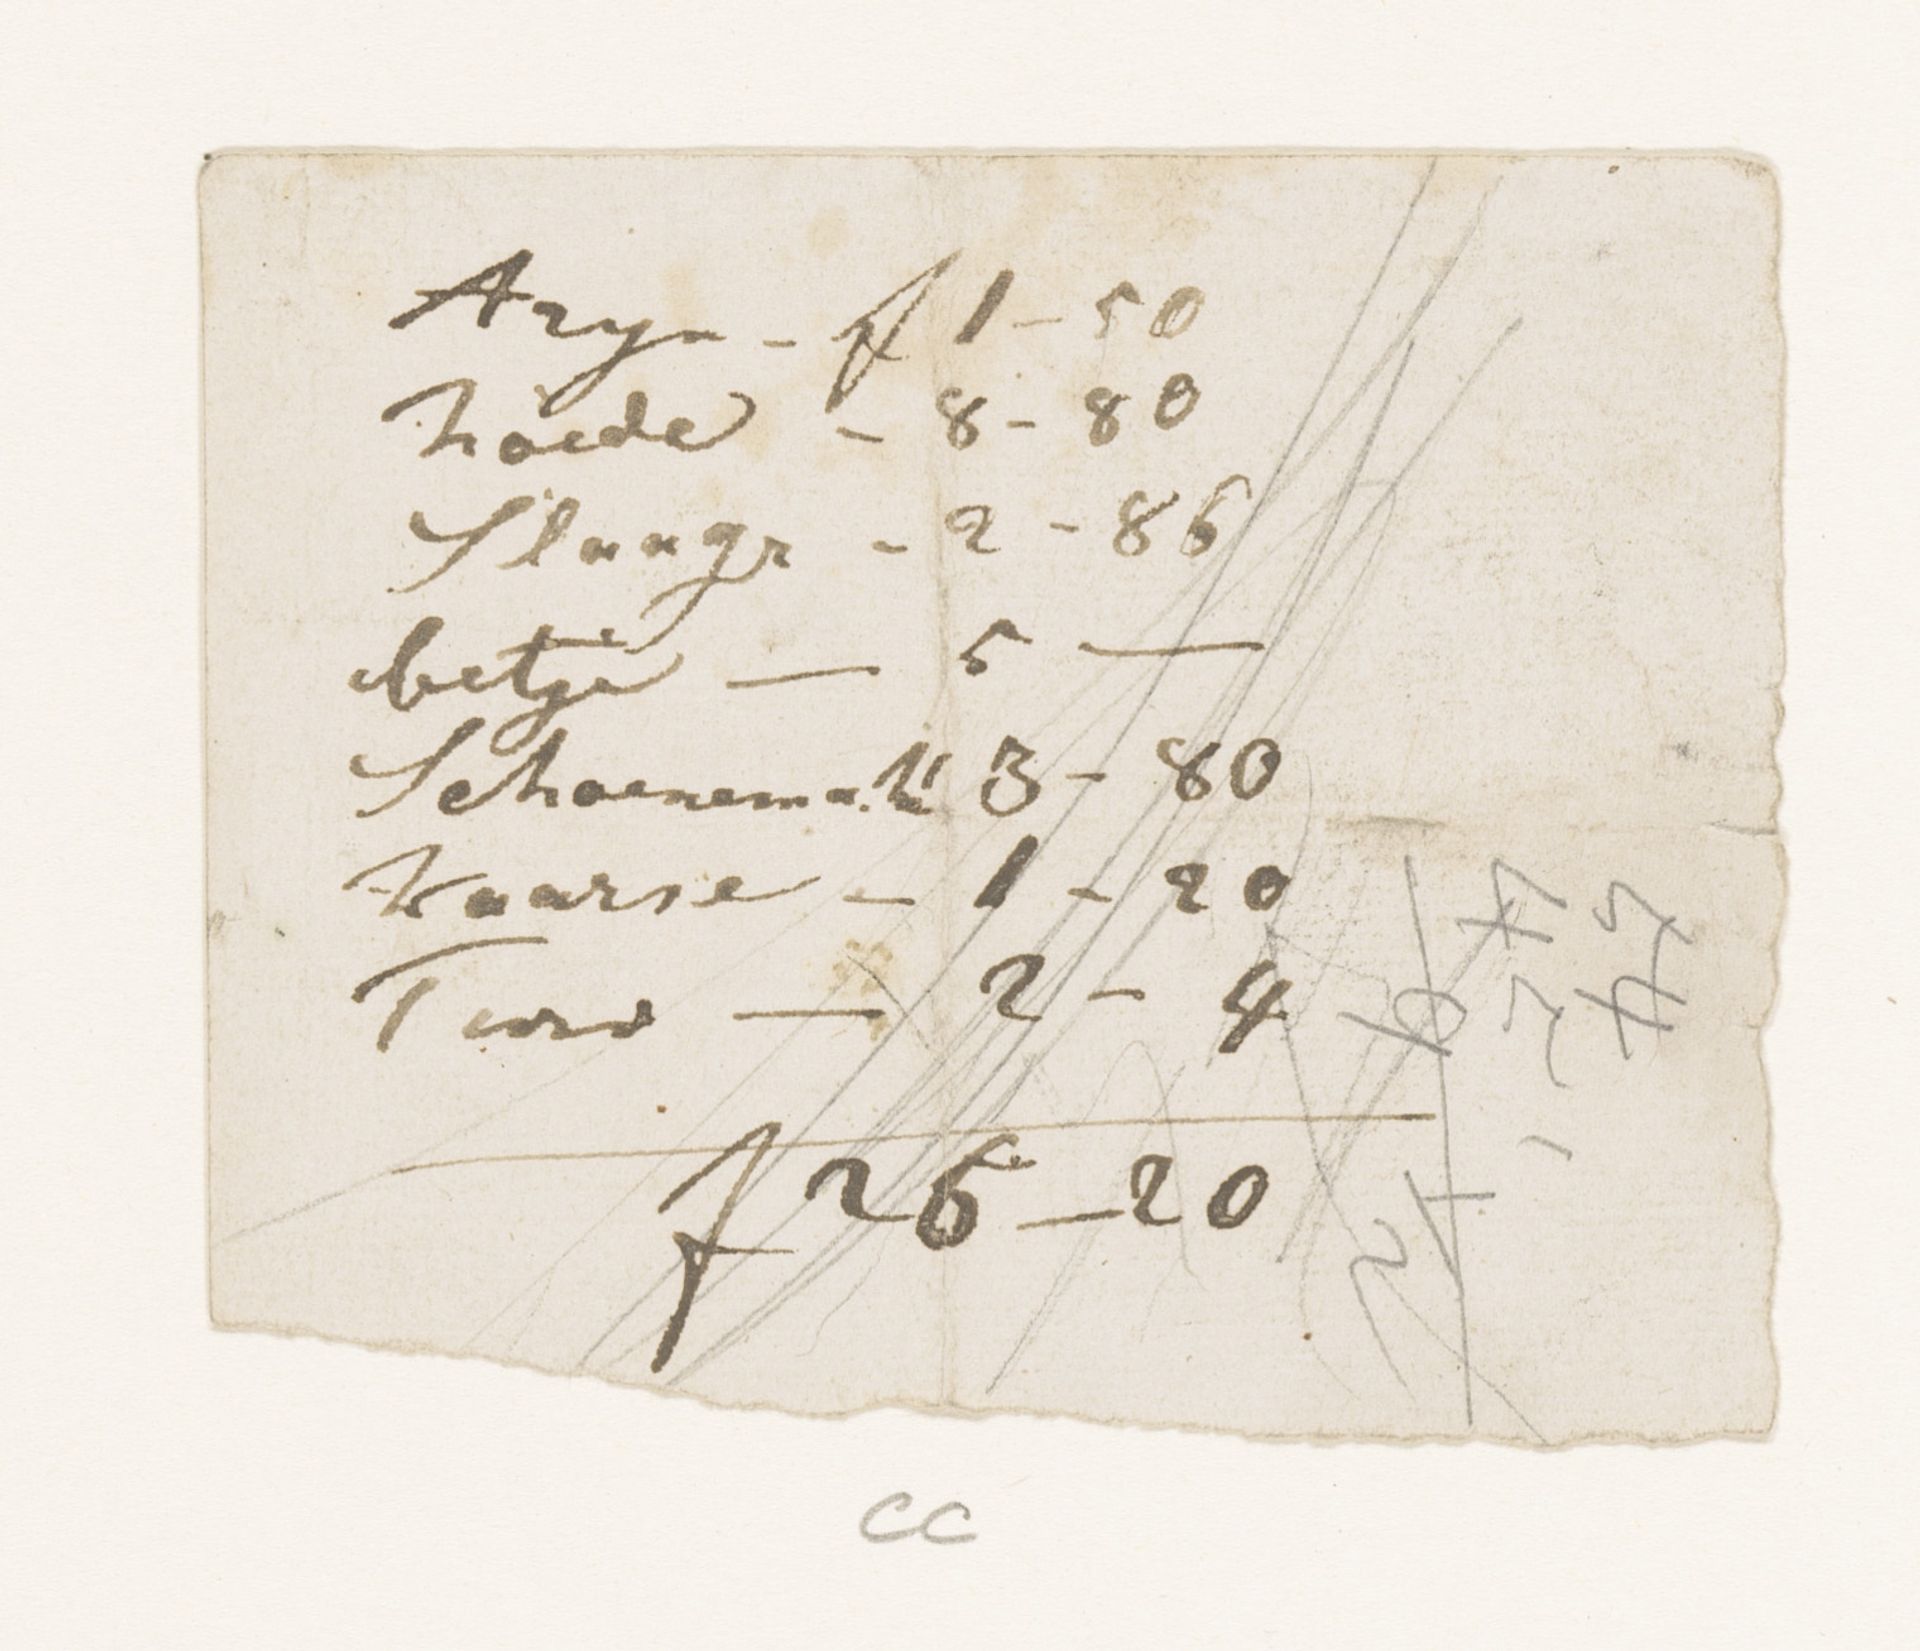 Azyn - f 1 - 50
hoede - 8 - 80
Slaagr - 2 - 86
betje — 5 —
Schoenemak' 3 - 80
Kaarse - 1 - 20
— 2 - 4
f 25 - 20
CC